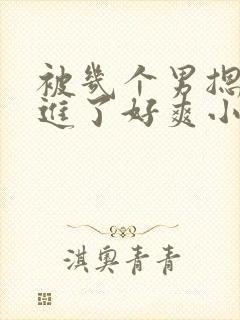 被几个男揌
进了好爽小
淇奥青青